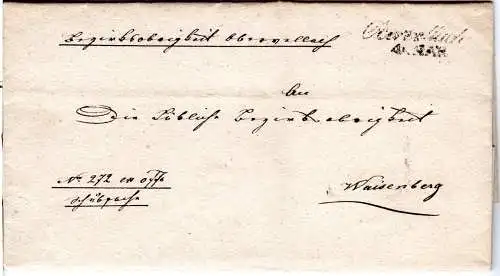 Bezirksobrigkeit Obervellach
Obervellach
4. MAR
An
Die Löbliche Bezirksobrigkeit
No 272 ex offo
Schubsache
Waisenberg